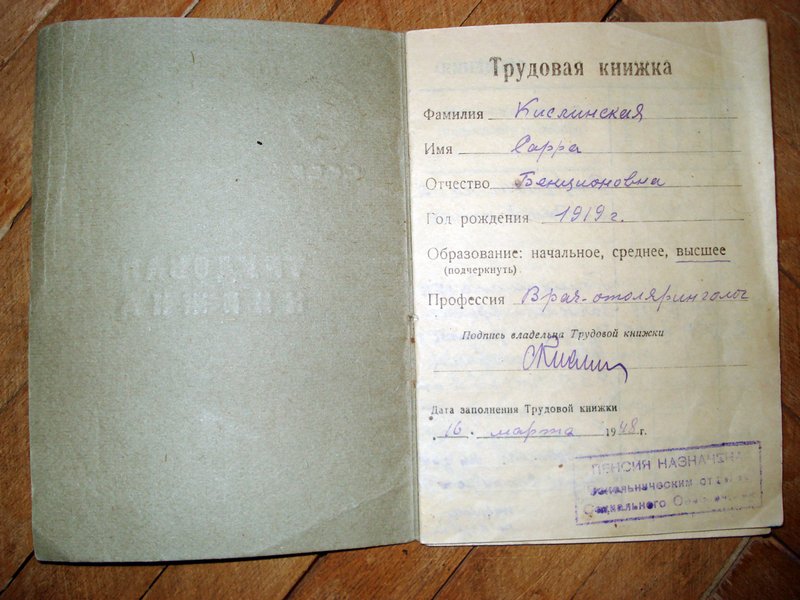 Трудовая книжка
Фамилия Кислинская
Имя Сарра
Отчество Бенционовна
Год рождения 1919 г.
Образование: начальное, среднее, высшее
(подчеркнуть)
Профессия Врач-отоляринголог
Подпись владельца Трудовой книжки
Дата заполнения Трудовой книжки
16. марта 1948 г.
ПЕНСИЯ НАЗНАЧЕНА
СССР
ТРУДОВАЯ
КНИЖКА